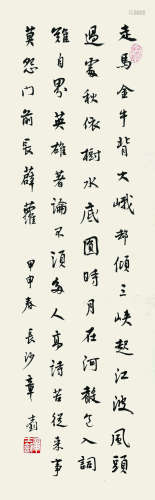 走馬金牛背大峨却傾三峽起江波風頭
過處秋依樹水底圓時月在河敢乞入詞
雖自界英雄著論不須多人高詩苦從來事
莫怨門前長薜蘿 甲申春 長沙章